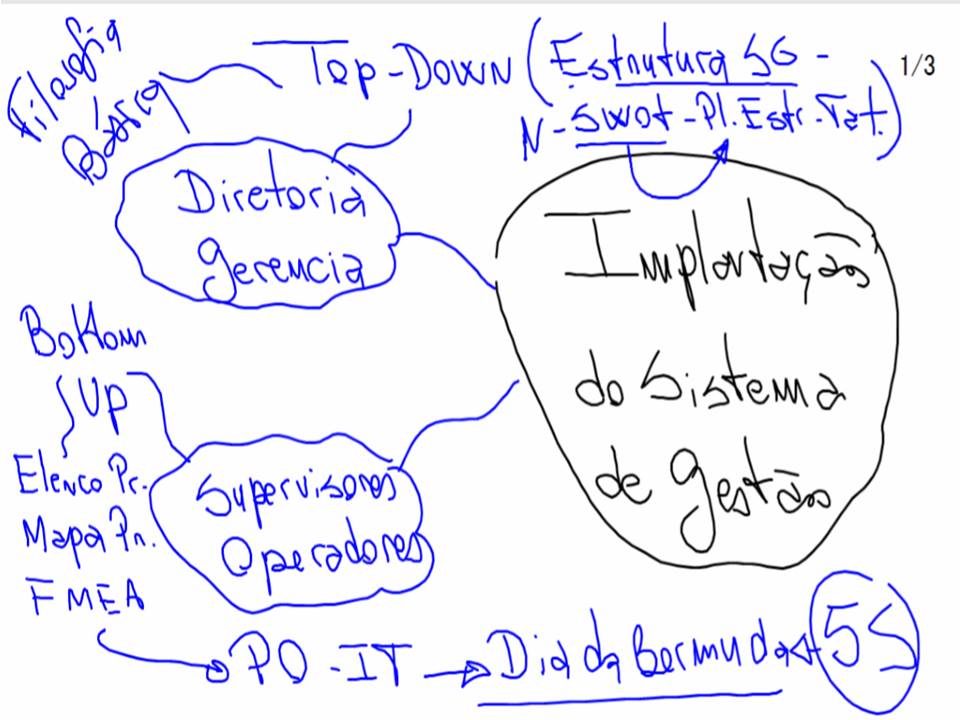 Filosofia
Básica
Top-Down (Estrutura SG -
N-Swot-Pl.Estr.Tat.)
1/3
Diretoria
gerencia
Implantação
do Sistema
de gestão
Bottom
Up
Elenco Pr.
Mapa Pr.
FMEA
Supervisores
Operadores
PO-IT → Dia da Bermuda 5S